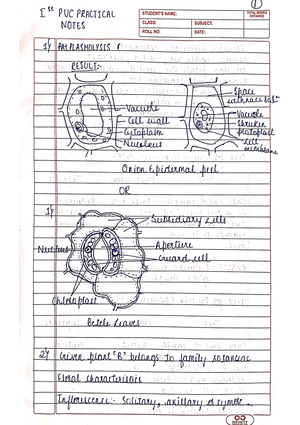 Ist PUC PRACTICAL
NOTES
STUDENT'S NAME:
CLASS:
SUBJECT:
ROLL NO:
DATE:
TOTAL MARKS
OBTAINED
1
1)
PLASMOLYSIS
RESULT:-
Vacuole
Cell wall
Cytoplasm
Nucleus
Space
Vacuole
Shrunken
protoplast
Cell
membrane
Onion Epidermal peel
OR
1)
Subsidiary cells
Nucleus
Aperture
Guard cell
Chloroplast
Betele Leaves
2) Given plant "B" belongs to family solanaceae
Floral characteristics
Inflorescence:- Solitary, axillary or cymose